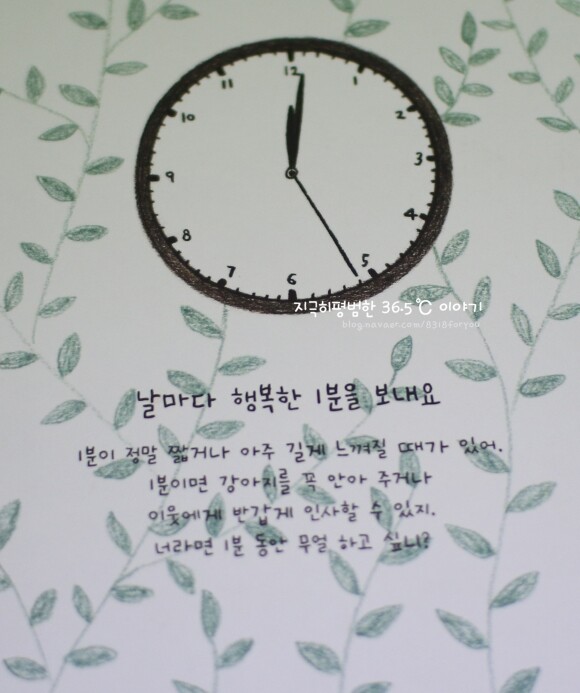 12
11
1
10
2
9
3
8
4
7
5
6
지극히평범한 36.5℃ 이야기
blog.naver.com/8318foryou
날마다 행복한 1분을 보내요
1분이 정말 짧거나 아주 길게 느껴질 때가 있어.
1분이면 강아지를 꼭 안아 주거나
이웃에게 반갑게 인사할 수 있지.
너라면 1분 동안 무얼 하고 싶니?